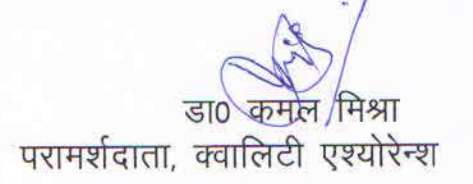 डा0 कमल मिश्रा
परामर्शदाता, क्वालिटी एश्योरेन्श